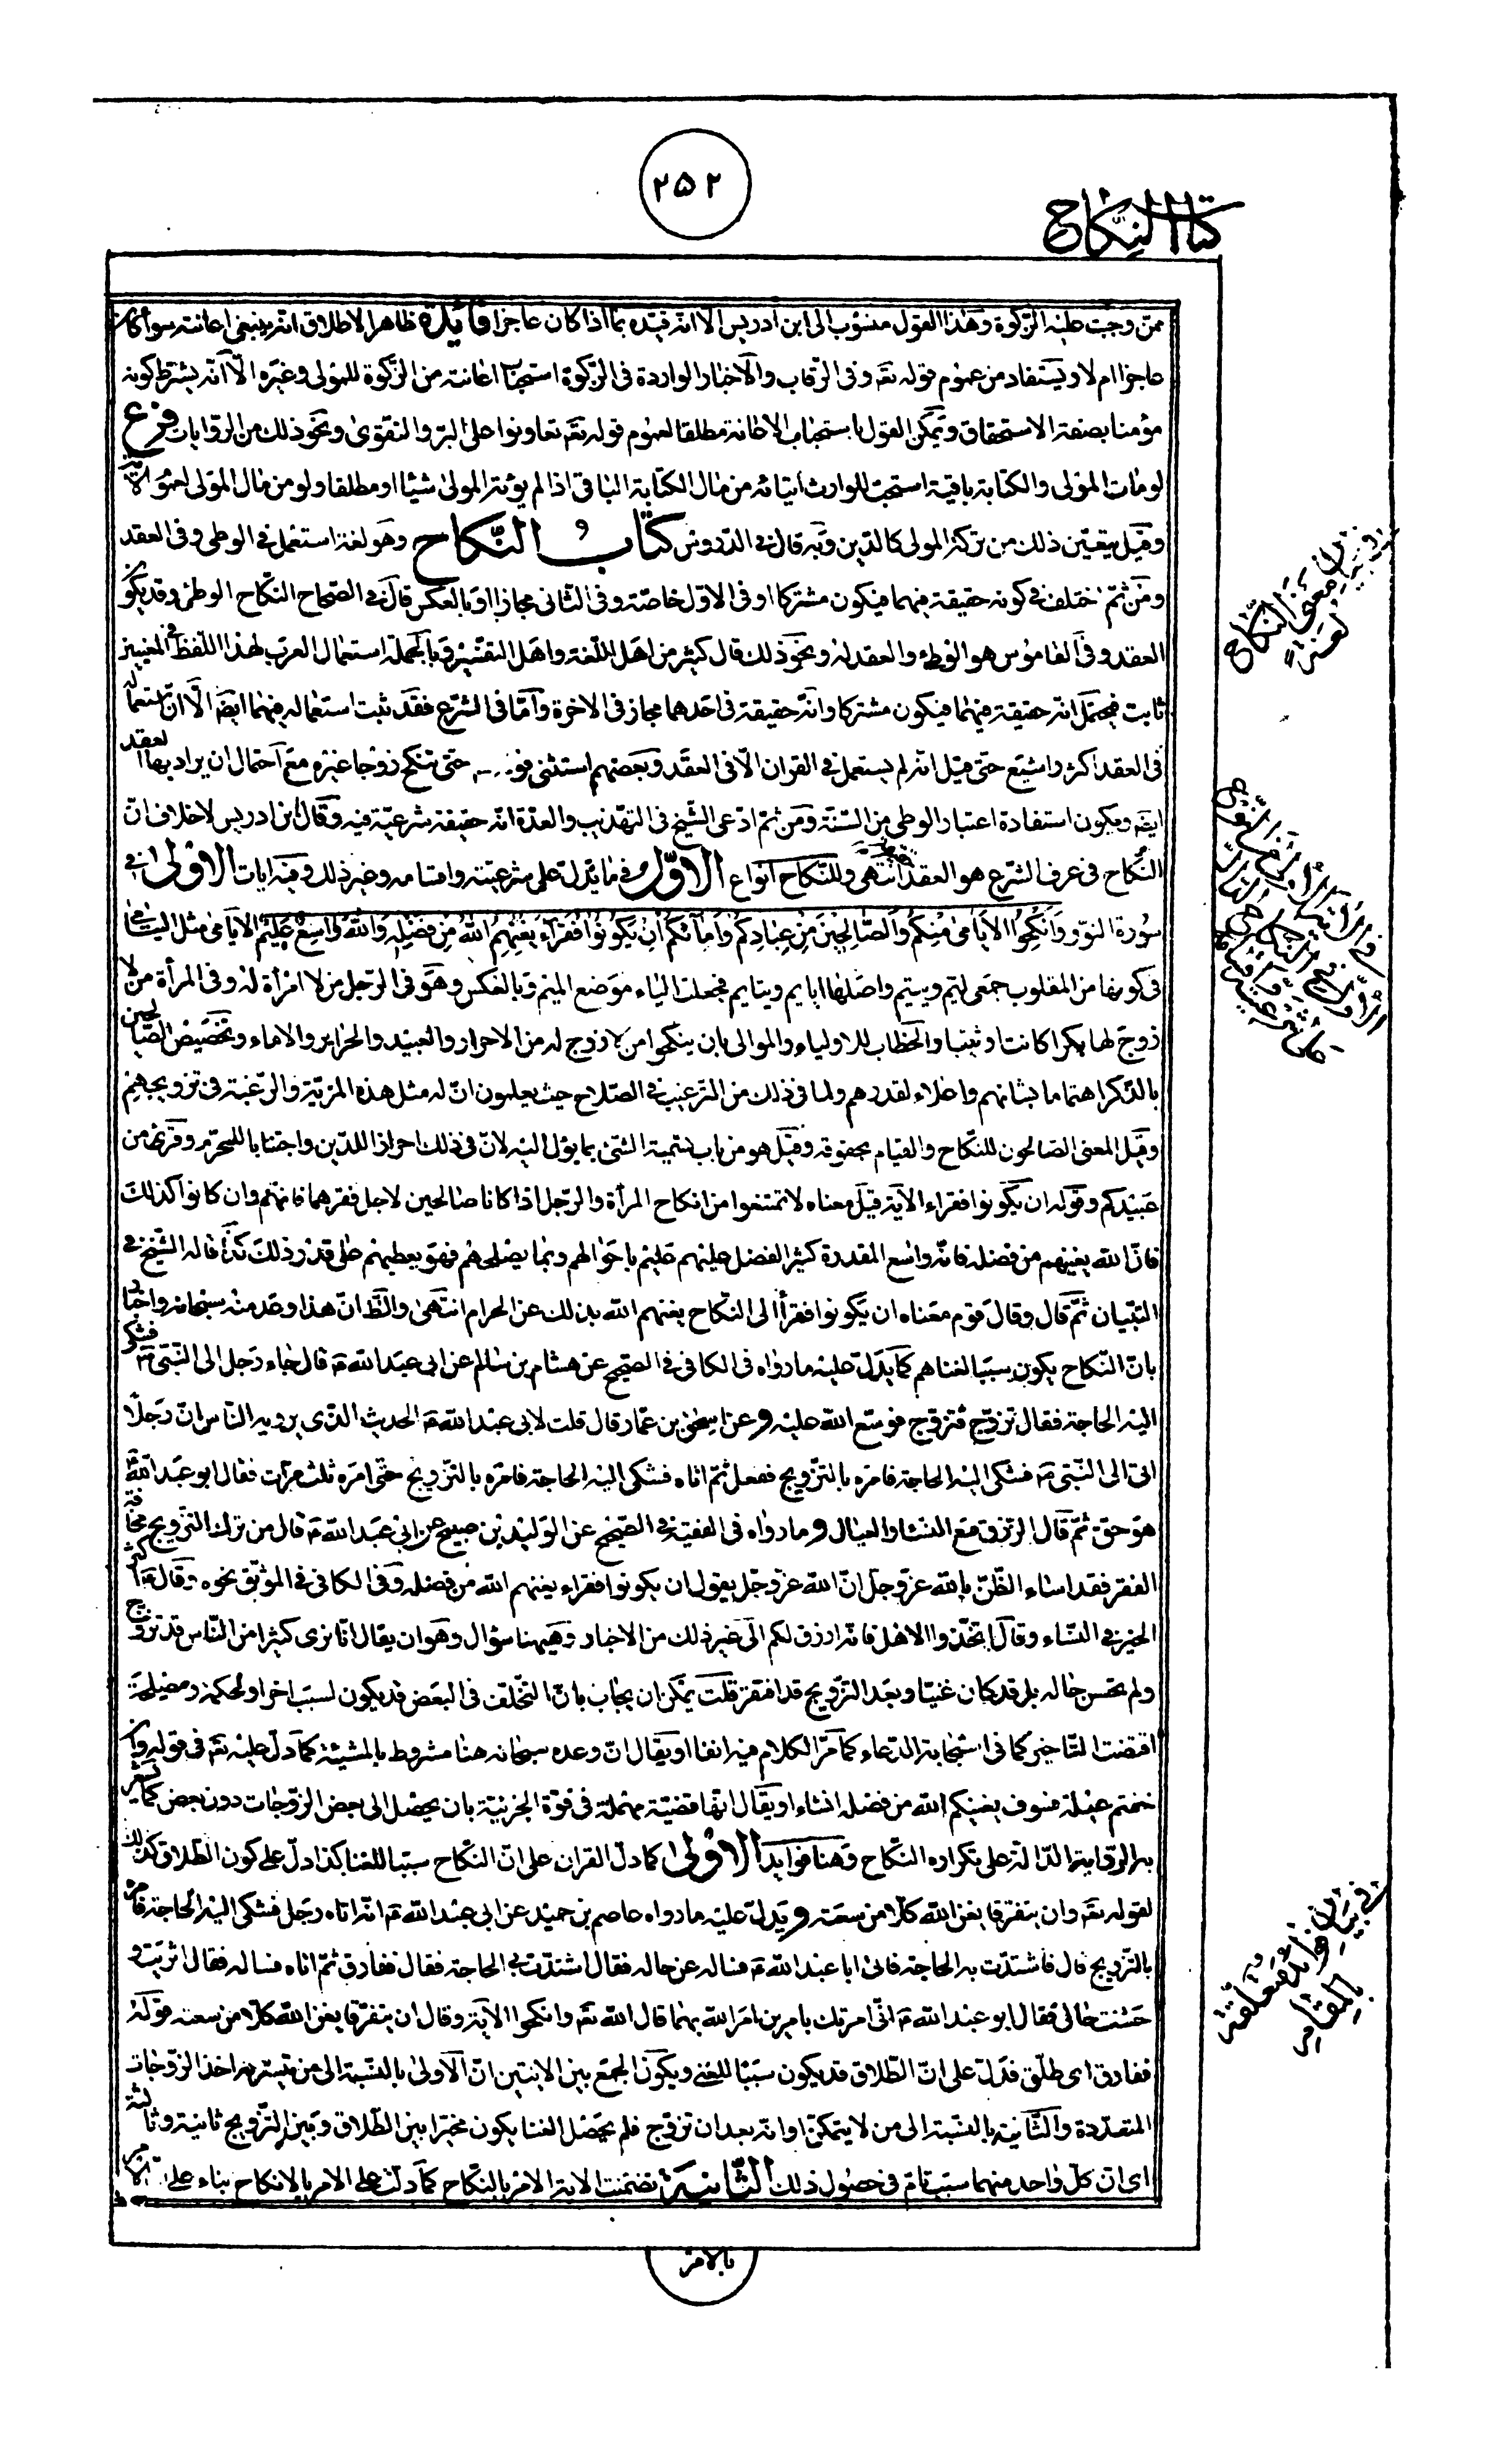 ٢٥٢
كتاب النكاح
ممّن وجبت عليه الزكوة وهذا القول منسوب الى ابن ادريس الا انّه قيّده بما اذا كان عاجزا فائدة ظاهر الاطلاق انّه ينبغي اعانته سواء كان
عاجزا ام لا ويستفاد من عموم قوله تعه وفى الرقاب والاخبار الواردة فى الزكوة استحباب اعانته من الزكوة للمولى وغيره الّا انّه يشترط كونه
مؤمنا بصفة الاستحقاق ويمكن القول باستحباب الاعانة مطلقا لعموم قوله تعه تعاونوا على البرّ والتقوى ونحو ذلك من الروايات فرع
لو مات المولى والكتابة باقية استحبّ للوارث ايتائه من مال الكتابة الباقى اذا لم يؤته المولى شيئا او مطلقا ولو من مال المولى لعموم الاية
وقيل يتعيّن ذلك من تركة المولى كالدّين وبه قال في الدروس كتاب النّكاح وهو لغة استعمل في الوطى وفى العقد
ومن ثمّ اختلف في كونه حقيقة فيهما فيكون مشتركا او فى الاوّل خاصّة وفى الثانى مجازا او بالعكس قال في الصحاح النكاح الوطئ وقد يكون
العقد وفى القاموس هو الوطء والعقد له ونحو ذلك قال كثير من اهل اللغة واهل التفسير وبالجملة استعمال العرب لهذا اللفظ في المعنيين
ثابت فيحتمل انّه حقيقة فيهما فيكون مشتركا وانّه حقيقة فى احدهما مجاز فى الاخرة وامّا فى الشرع فقد ثبت استعماله فيهما ايضه الّا انّ استعماله
فى العقد اكثر واشيع حتى قيل انّه لم يستعمل في القران الّا فى العقد وبعضهم استثنى قوله حتى تنكح زوجا غيره مع احتمال ان يراد بها العقد
ايضه ويكون استفادة اعتبار الوطى من السّنة ومن ثمّ ادّعى الشّيخ فى التهذيب والعدّة انّه حقيقة شرعيّة فيه وقال ابن ادريس لا خلاف انّ
النّكاح فى عرف الشرع هو العقد انتهى وللنّكاح انواع الاوّل في ما يدلّ على شرعيّته واقسامه وغير ذلك وفيه ايات الاولى في
سورة النور وَاَنْكِحُوا الاَيَامى مِنْكُمْ وَالصَّالِحِينَ مِنْ عِبَادِكُمْ وَاِمَائِكُمْ اِنْ يَكُونُوا فُقَرَاءَ يُغْنِهِمُ اللهُ مِنْ فَضْلِهِ وَاللهُ وَاسِعٌ عَلِيمٌ الايامى مثل اليتامى
فى كونها من المقلوب جمعى ايّم ويتيم واصلها ايايم ويتايم فجعلت الياء موضع الميم وبالعكس وهو فى الرجل من لا امرأة له وفى المرأة من لا
زوج لها بكرا كانت او ثيّبا والخطاب للاولياء والموالى بان ينكحوا من لا زوج له من الاحرار والعبيد والحراير والاماء وتخصيص الصّالحين
بالذّكر اهتماما بشانهم واعلاء لقدرهم ولما فى ذلك من الترغيب في الصّلاح حيث يعلمون انّ له مثل هذه المزيّة والرغبة فى تزويجهم
وقيل المعنى الصالحون للنّكاح والقيام بحقوقه وقيل هو من باب تسمية الشئ بما يؤل اليه لانّ فى ذلك احرازا للدّين واجتنابا للمحرّم وقرئ من
عبيدكم وقوله ان يكونوا فقراء الاية قيل معناه لا تمتنعوا من انكاح المرأة والرجل اذا كانا صالحين لاجل فقرهما فانّهم وان كانوا كذلك
فانّ الله يغنيهم من فضله فانّه واسع المقدرة كثير الفضل عليهم عليم باحوالهم وبما يصلحهم فهو يعطيهم على قدر ذلك كذا قاله الشيخ في
التبيان ثمّ قال وقال قوم معناه ان يكونوا فقرأ الى النّكاح يغنهم الله بذلك عن الحرام انتهى والظّ انّ هذا وعد منه سبحانه واخبار
بانّ النّكاح يكون سببا لغناهم كما يدلّ عليه ما رواه فى الكافى في الصّحيح عن هشام بن سالم عن ابى عبد الله عه قال جاء رجل الى النّبى صه فشكى
اليه الحاجة فقال تزوّج فتزوّج فوسّع الله عليه وعن اسحق بن عمّار قال قلت لابى عبد الله عه الحديث الذى يرويه الناس انّ رجلا
اتى الى النّبى صه فشكى اليه الحاجة فامره بالتّزويج ففعل ثمّ اتاه فشكى اليه الحاجة فامره بالتّزويج حتّى امره ثلث مرّات فقال ابو عبد الله
هو حقّ ثمّ قال الرزق مع النساء والعيال وما رواه فى الفقيه في الصّحيح عن الوليد بن صبيح عن ابى عبد الله عه قال من ترك التزويج مخافة
الفقر فقد اساء الظّنّ بالله عزّ وجلّ انّ الله عزّ وجلّ يقول ان يكونوا فقراء يغنهم الله من فضله وفى الكافى في الموثّق نحوه وقال عه اكثر
الخير في النساء وقال اتّخذوا الاهل فانّه ارزق لكم الى غير ذلك من الاخبار وههنا سؤال وهو ان يقال انّا نرى كثيرا من النّاس قد تزوّج
ولم يحسن حاله بل قد كان غنيّا وبعد التزويج قد افتقر قلت يمكن ان يجاب بانّ التخلّف فى البعض قد يكون لسبب اخر او لحكمة ومصلحة
اقتضت التّاخير كما فى استجابة الدّعاء كما مرّ الكلام فيه انفا او يقال انّ وعده سبحانه هنا مشروط بالمشيّة كما دلّ عليه تعه فى قوله وان
خفتم عيلة فسوف يغنيكم الله من فضله ان شاء او يقال انّها قضيّة مهملة فى قوّة الجزئيّة بان يحصل الى بعض الزوجات دون بعض كما يشعر
به الرّواية الدّالة على تكرار النكاح وهنا فوايد الاولى كما دلّ القران على انّ النكاح سببا للغنا كذا دلّ على كون الطّلاق كذلك
لقوله تعه وان يتفرّقا يغن الله كلّا من سعته ويدلّ عليه ما رواه عاصم بن حميد عن ابى عبد الله عه انّه اتاه رجل فشكى اليه الحاجة فامره
بالتّزويج قال فاشتدّت به الحاجة فاتى ابا عبد الله عه فساله عن حاله فقال اشتدّت بي الحاجة فقال ففارق ثمّ اتاه فساله فقال اثريت و
حسنت حالى فقال ابو عبد الله عه انّى امرتك بامرين امر الله بهما قال الله تعه وانكحوا الاية وقال ان يتفرّقا يغن الله كلّا من سعته قوله
ففارق اى طلّق فدلّ على انّ الطّلاق قد يكون سببا للغنى ويكون الجمع بين الايتين انّ الاولى بالنّسبة الى من تيسّر له اخذ الزوجات
المتعدّدة والثّانية بالنّسبة الى من لا يتمكّن او انّه بعد ان تزوّج فلم يحصل الغنا يكون مخيّرا بين الطّلاق وبين التّزويج ثانية وثالثة
اى انّ كلّ واحد منهما سبب تامّ فى حصول ذلك الثّانية تضمّنت الاية الامر بالنّكاح كما دلّت على الامر بالانكاح بناء على انّ الامر
بالامر
في بيان معنى النّكاح
لغة
في بيان فوائد متعلّقة
بالمقام